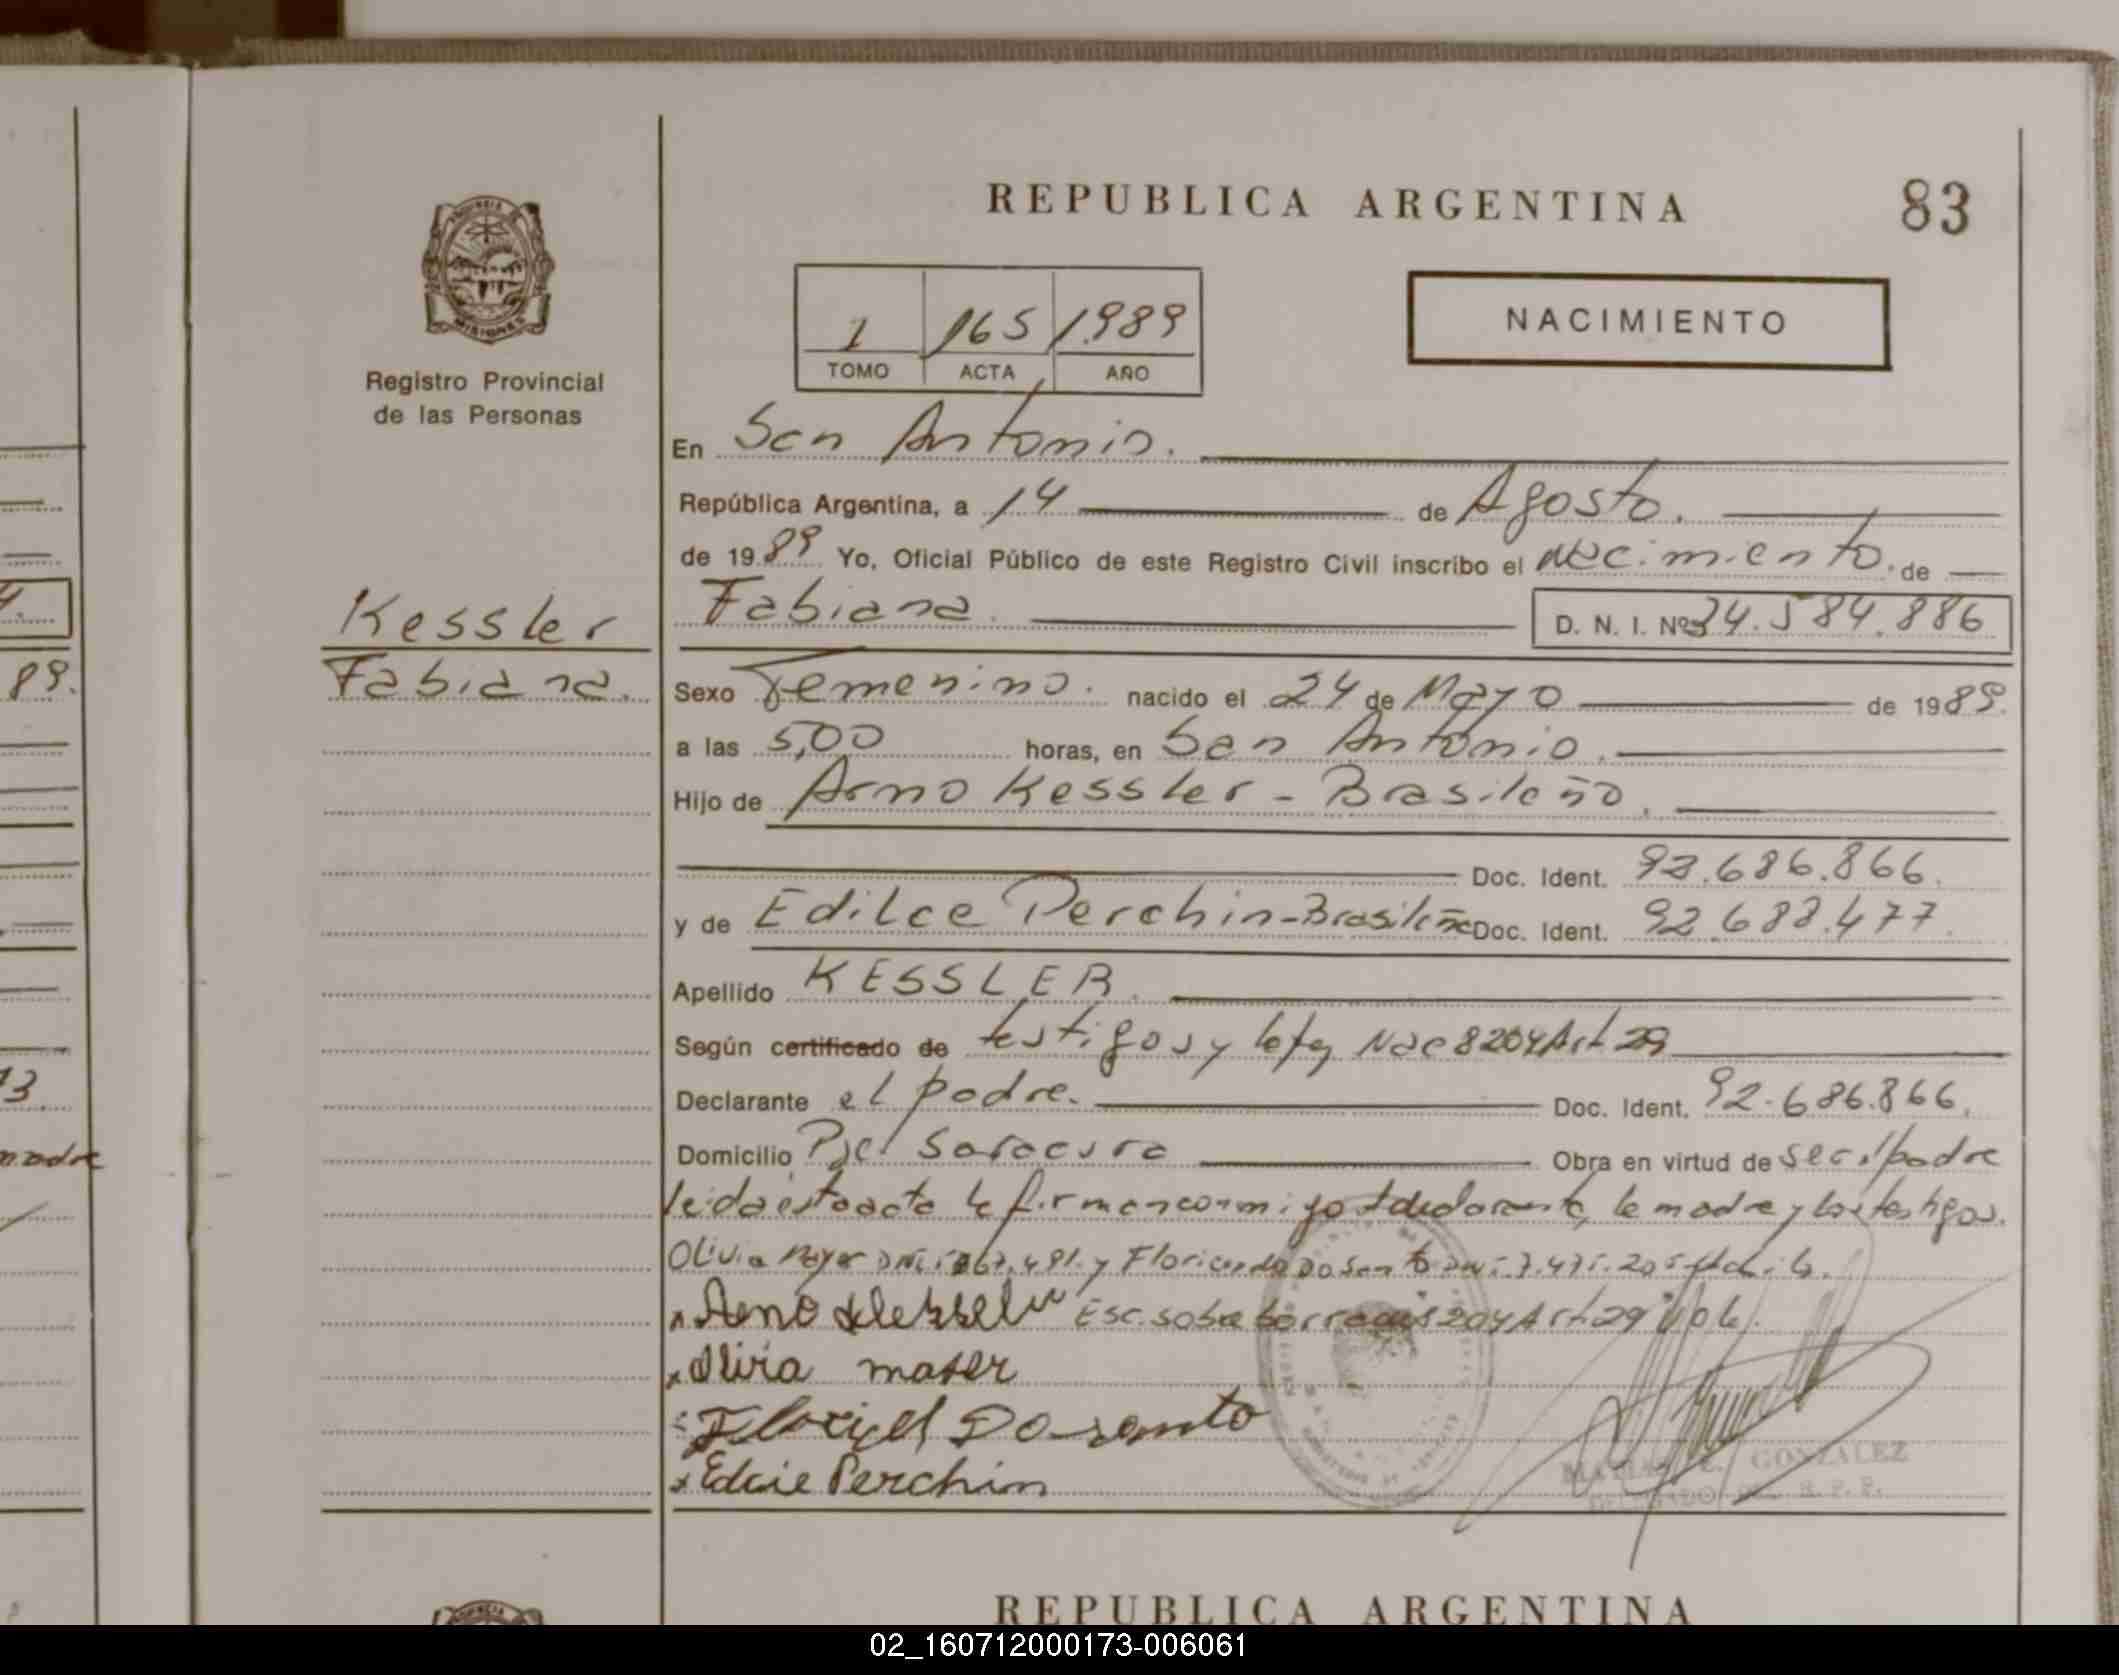 REPUBLICA ARGENTINA
83
PROVINCIA DE
MISIONES
Registro Provincial
de las Personas
1 165 1.989
TOMO ACTA AÑO
NACIMIENTO
En San Antonio.
República Argentina, a 14 de Agosto.
de 1989 Yo, Oficial Público de este Registro Civil inscribo el Nacimiento. de
Fabiana. D. N. I. Nº 34.584.886
Kessler
Fabiana.
Sexo Femenino. nacido el 24 de Mayo de 1989.
a las 5,00 horas, en San Antonio.
Hijo de Arno Kessler - Brasileño.
Doc. Ident. 92.686.866.
y de Edilce Perchin-Brasileña Doc. Ident. 92.688.477.
Apellido KESSLER.
Según certificado de testigos y Nac 8204 Art 29
Declarante el padre. Doc. Ident. 92.686.866.
Domicilio Pje Saracura Obra en virtud de ser el padre
leida esta acta la firman conmigo el declarante, la madre y los testigos.
Olivia y
Arno Esc. sobre 204 Art 29 Vale.
Olivia maser
Do santo
Edcie Perchin
GONZALEZ
DELEGADO R. P. P.
89.
13
madre
REPUBLICA ARGENTINA
02_160712000173-006061